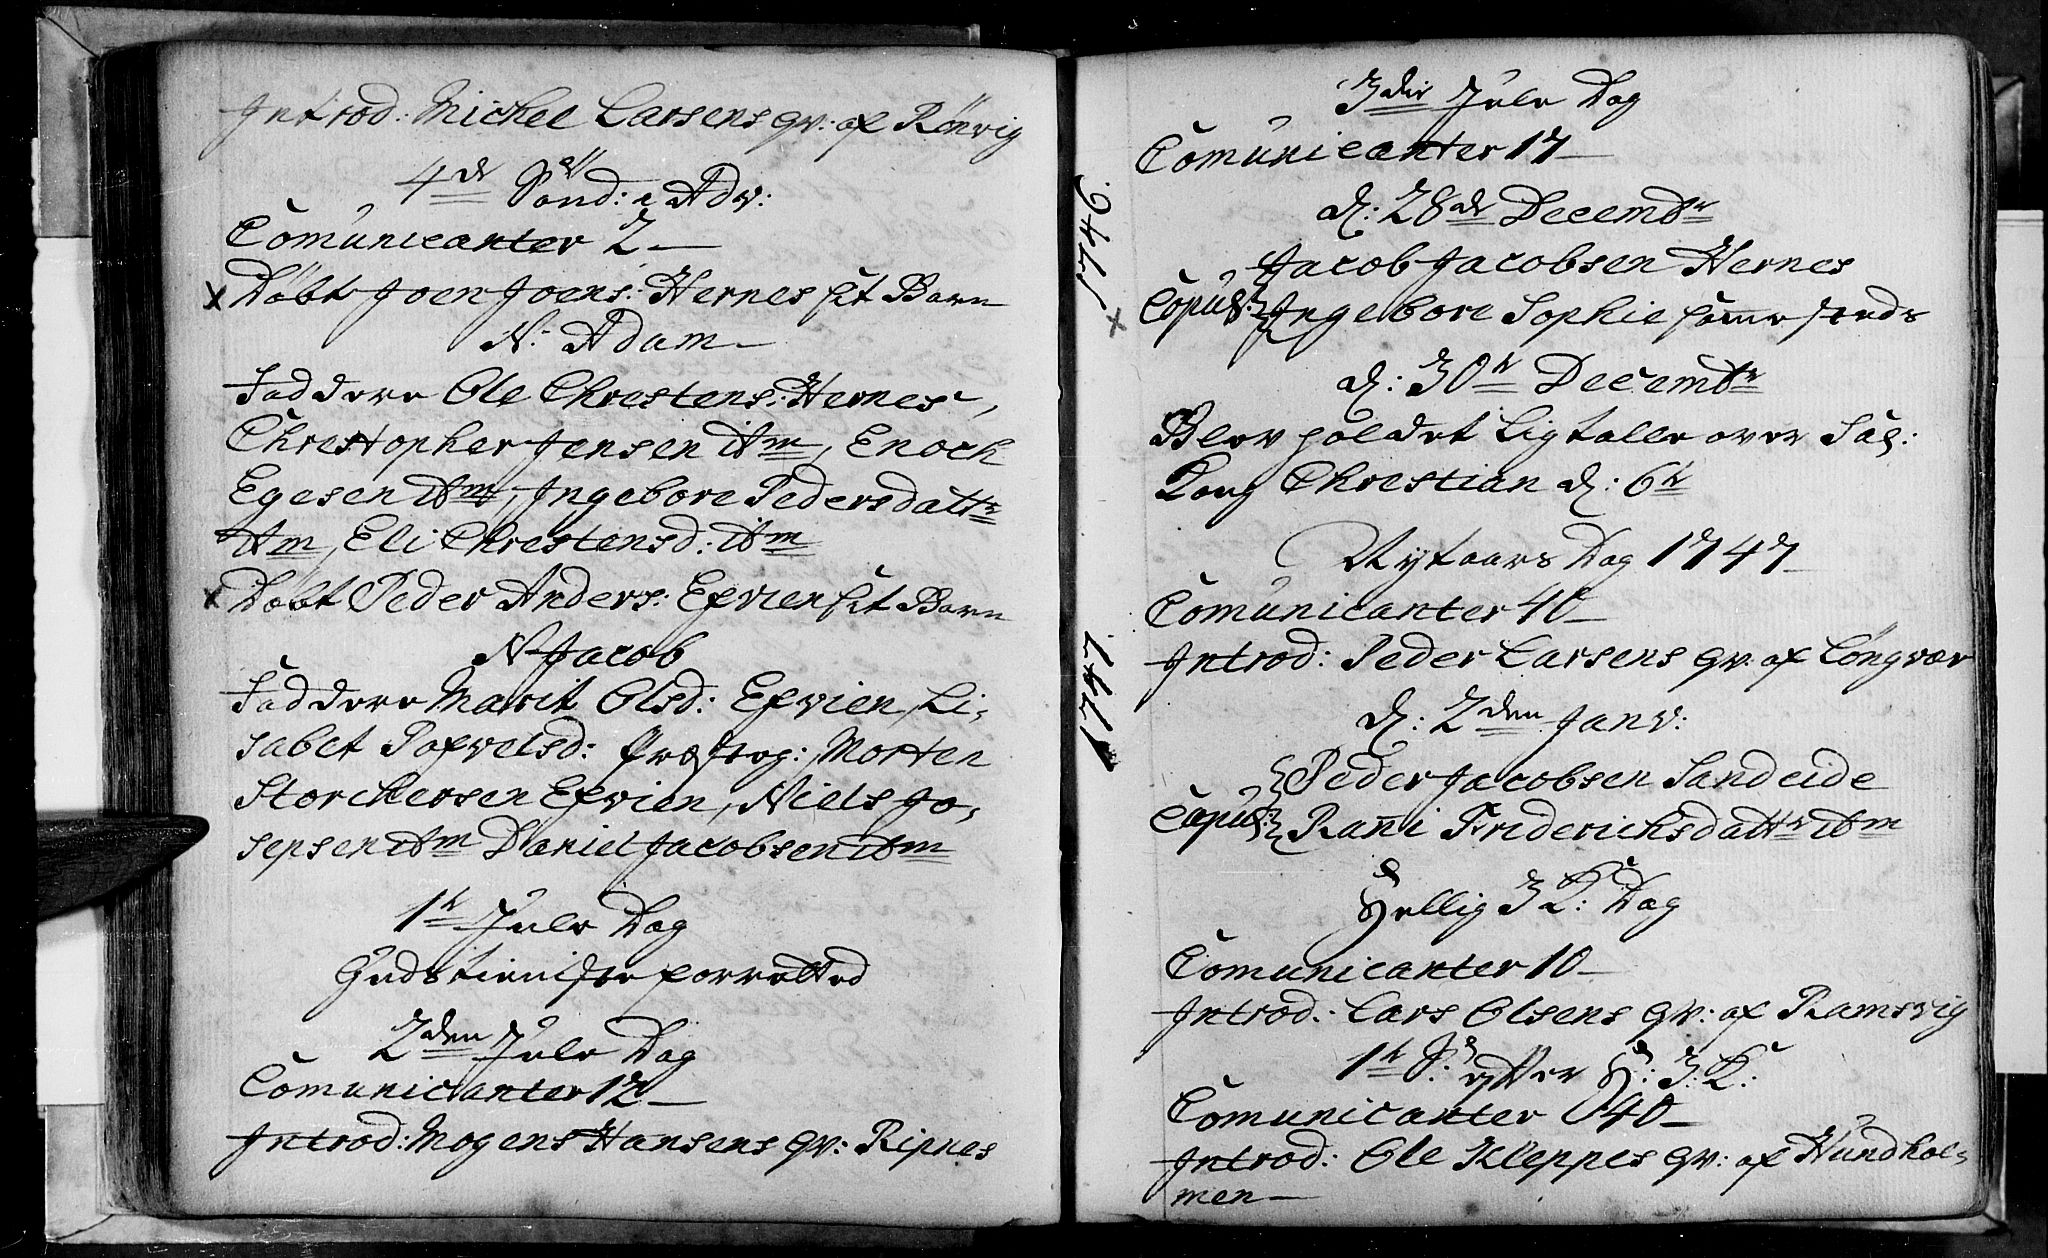 Introd: Michel Larsens qv: af Rönvig
4de Sönd: i Adv:
Comunicanter 2
x Döbt Joen Joens: Hernes sit Barn
N: Adam
Faddere Ole Chrestens: Hernes,
Christopher Jensen itm, Enoch
Egesen itm, Ingebore Pedersdattr
itm, Eli Chrestensd: itm
x Döbt Peder Anders: Efvien sit Barn
N Jacob
Faddere Marit Olsd: Efvien, Li-
sabet Pofvelsd: Præsteg: Morten
Storchersen Efvien, Niels Jo-
sepsen itm Daniel Jacobsen itm
1te Jule Dag
Gudstienisten forretted
2den Jule Dag
Comunicanter 12
Introd: Mogens Hansens qv: Ripnes
3die Jule Dag
Comunicanter 17
1746.
d: 28de Decembr
Jacob Jacobsen Hernes
x Copul: Ingebore Sophie samesteds
d: 30te Decembr
Blev holdet Ligtalle over Sal:
Kong Chrestian d: 6te
Nytaars Dag 1747
1747.
Comunicanter 40
Introd: Peder Larsens qv: af Löngvær
d: 2den Janv:
Peder Jacobsen Sandeide
Copul: Rañi Friderichsdattr itm
Hellig 3 K: Dag
Comunicanter 10
Introd: Lars Olsens qv: af Ramsvig
1te S: efter H: 3: K:
Comunicanter 40
Introd: Ole Kleppes qv: af Hundhol-
men